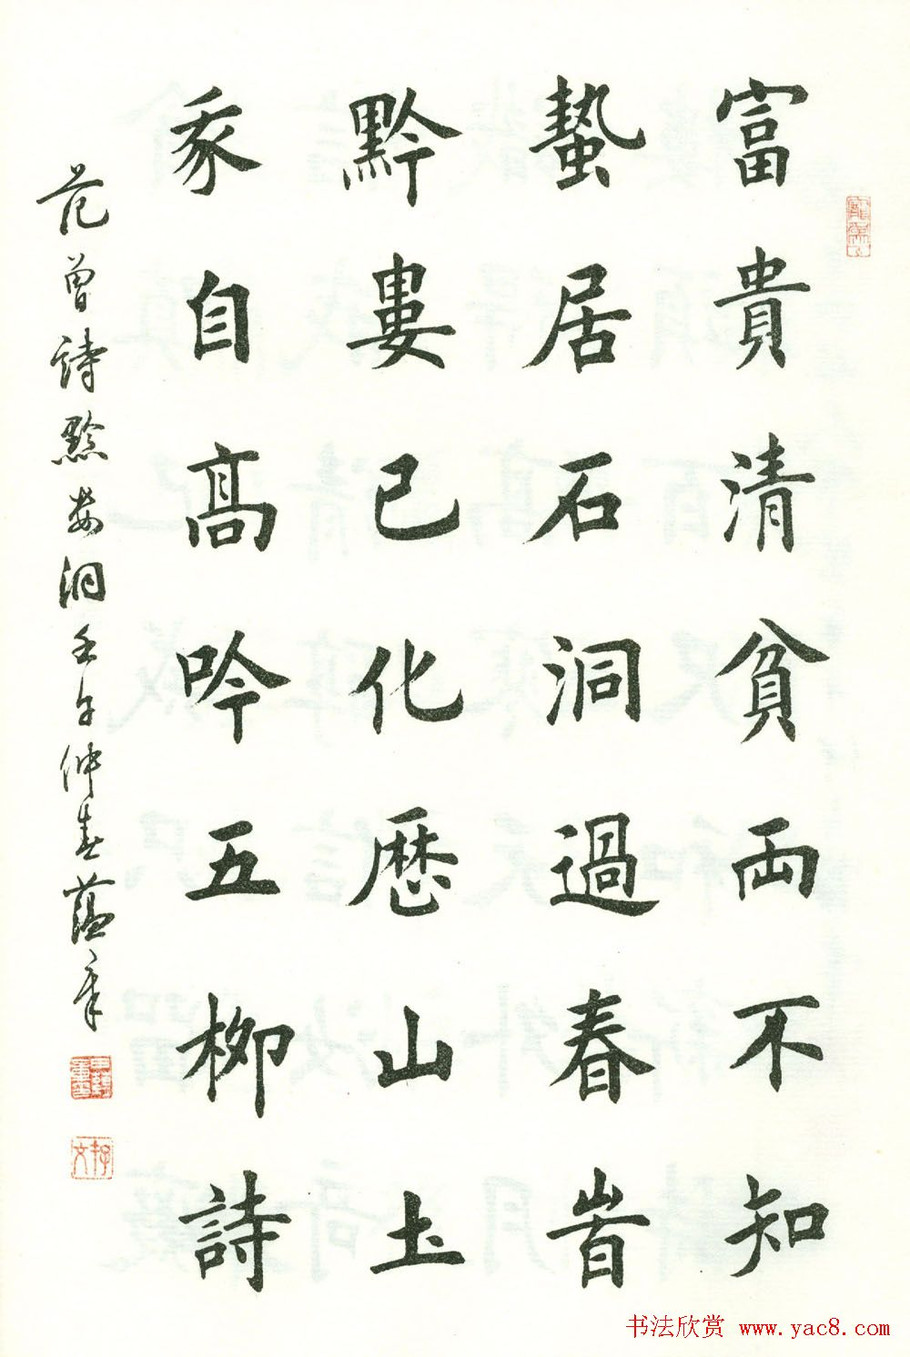 富貴清貧兩不知
蟄居石洞過春旹
黔婁已化歷山土
我自髙吟五柳詩
范曾詩黔婁洞壬午仲春蘊章
书法欣赏 www.yac8.com